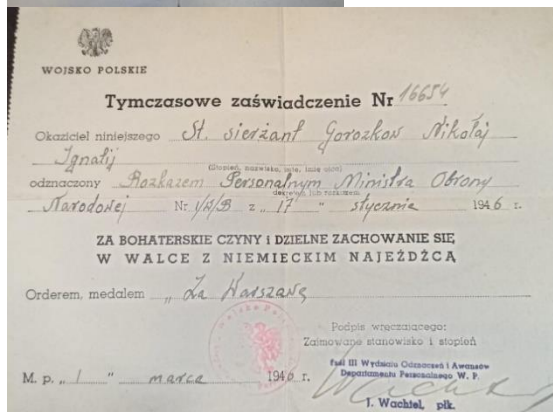 WOJSKO POLSKIE
Tymczasowe zaświadczenie Nr 16654
Okaziciel niniejszego St. sierżant Gorozkow Nikołaj
Ignatij
(Stopień, nazwisko, imię, imię ojca)
odznaczony Rozkazem Personalnym Ministra Obrony
dekretem lub rozkazem
Narodowej Nr z „ 17 " stycznia 1946 r.
ZA BOHATERSKIE CZYNY i DZIELNE ZACHOWANIE SIĘ
W WALCE Z NIEMIECKIM NAJEŹDŹCĄ
Orderem, medalem „ Za Warszawę
Podpis wręczającego:
Zajmowane stanowisko i stopień
Szef III Wydziału Odznaczeń i Awansów
Departamentu Personalnego W. P.
M. p. „ 1 " marca 1946 r.
J. Wachtel, płk.